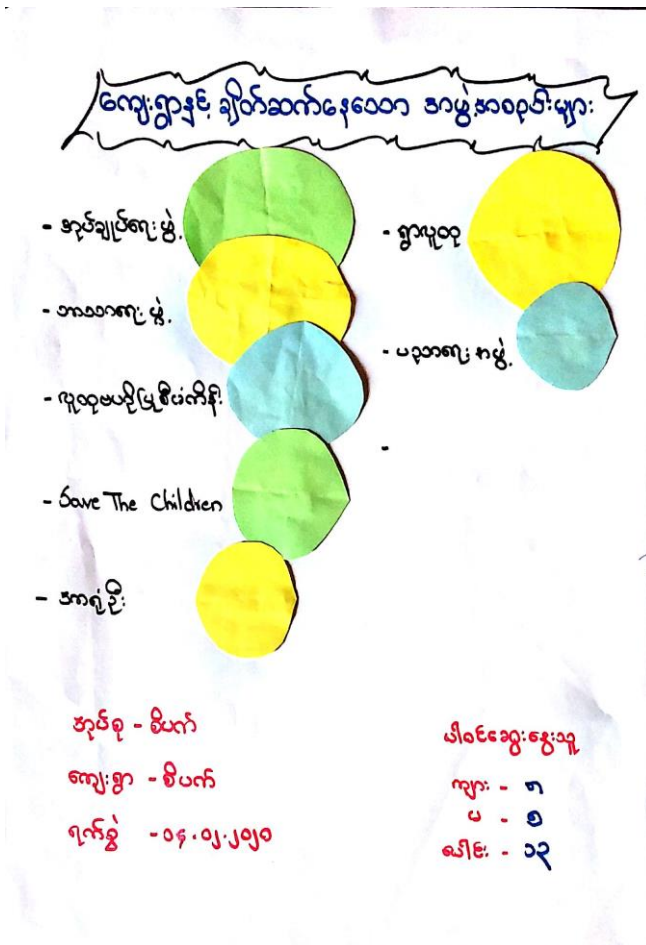 ကျေးရွာနှင့် ချိတ်ဆက်နေသော အဖွဲ့အစည်းများ
- အုပ်ချုပ်ရေးဖွဲ့
- ဘာသာရေးဖွဲ့
- လူထုဗဟိုပြုစီမံကိန်း
- Save The Children
- အရံဦး
- ရွာလူထု
- ပညာရေးအဖွဲ့
-
အုပ်စု - စီပက်
ကျေးရွာ - စီပက်
ရက်စွဲ - ၀၄.၀၂.၂၀၂၀
ပါဝင်ဆွေးနွေးသူ
ကျား - ၈
မ - ၅
ပေါင်း - ၁၃